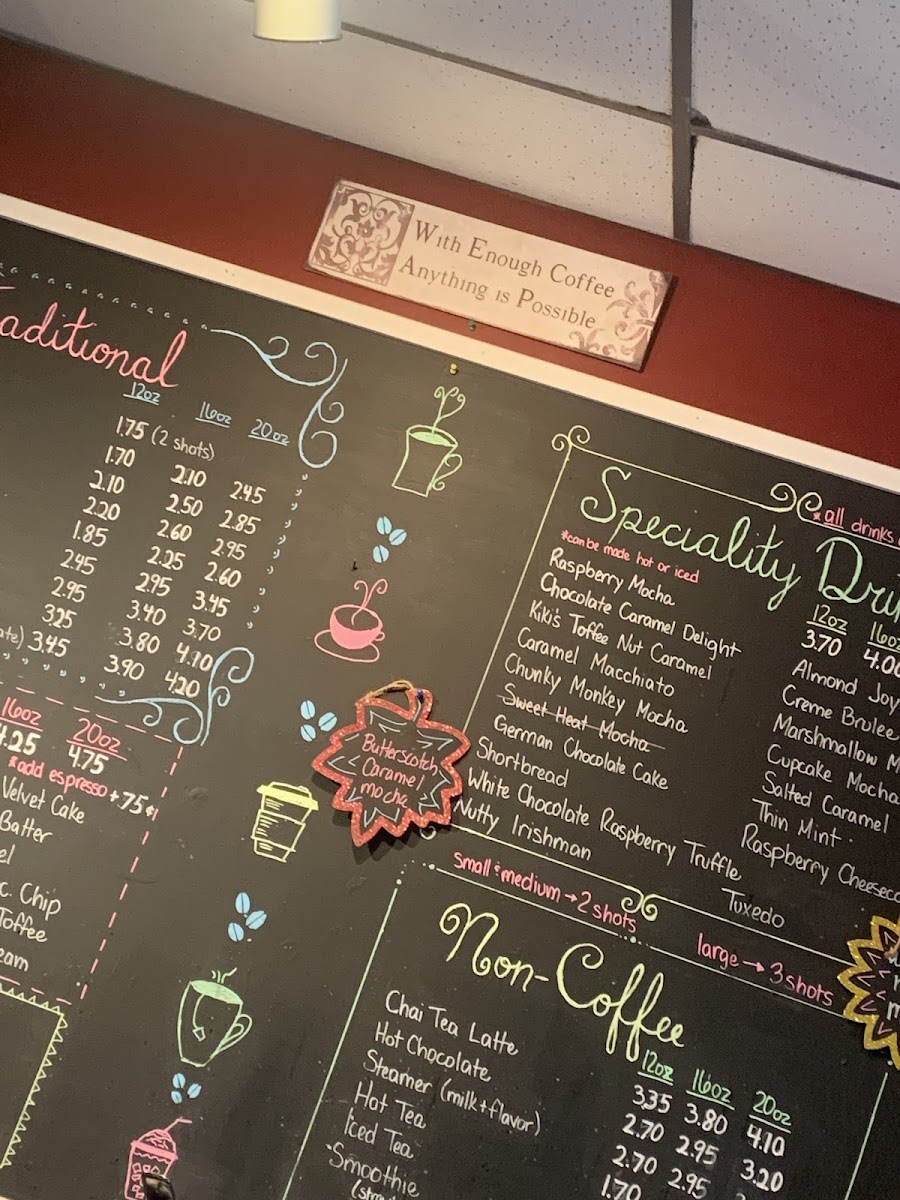 With Enough Coffee
Anything is Possible
aditional
12oz 16oz 20oz
1.75 (2 shots)
1.70 2.10 2.45
2.10 2.50 2.85
2.20 2.60 2.95
1.85 2.25 2.60
2.45 2.95 3.45
2.95 3.40 3.70
3.25 3.80 4.10
ate) 3.45 3.90 4.20
16oz 20oz
4.25 4.75
*add espresso +75¢
Velvet Cake
Batter
el
c. Chip
Toffee
eam
Butterscotch
Caramel
mocha
Speciality Dri
*all drinks
*can be made hot or iced
12oz 16oz
3.70 4.00
Raspberry Mocha
Chocolate Caramel Delight
Kiki's Toffee Nut Caramel
Caramel Macchiato
Chunky Monkey Mocha
Sweet Heat Mocha
German Chocolate Cake
Shortbread
White Chocolate Raspberry Truffle
Nutty Irishman
Almond Joy
Creme Brulee
Marshmallow M
Cupcake Mocha
Salted Caramel
Thin Mint
Raspberry Cheeseca
Tuxedo
small & medium → 2 shots
large → 3 shots
Non-Coffee
12oz 16oz 20oz
Chai Tea Latte 3.35 3.80 4.10
Hot Chocolate 2.70 2.95 3.20
Steamer (milk + flavor) 2.70 2.95
Hot Tea 1.70
Iced Tea
Smoothie